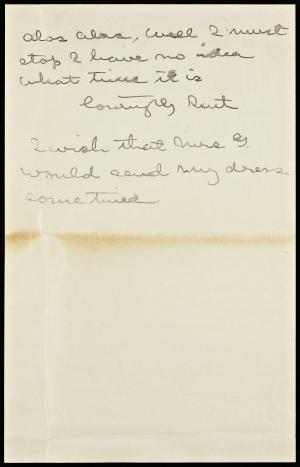 alas alas, well I must
stop I have no idea
what time it is
Lovingly Aunt
I wish that Mrs G.
would send my dress
sometime